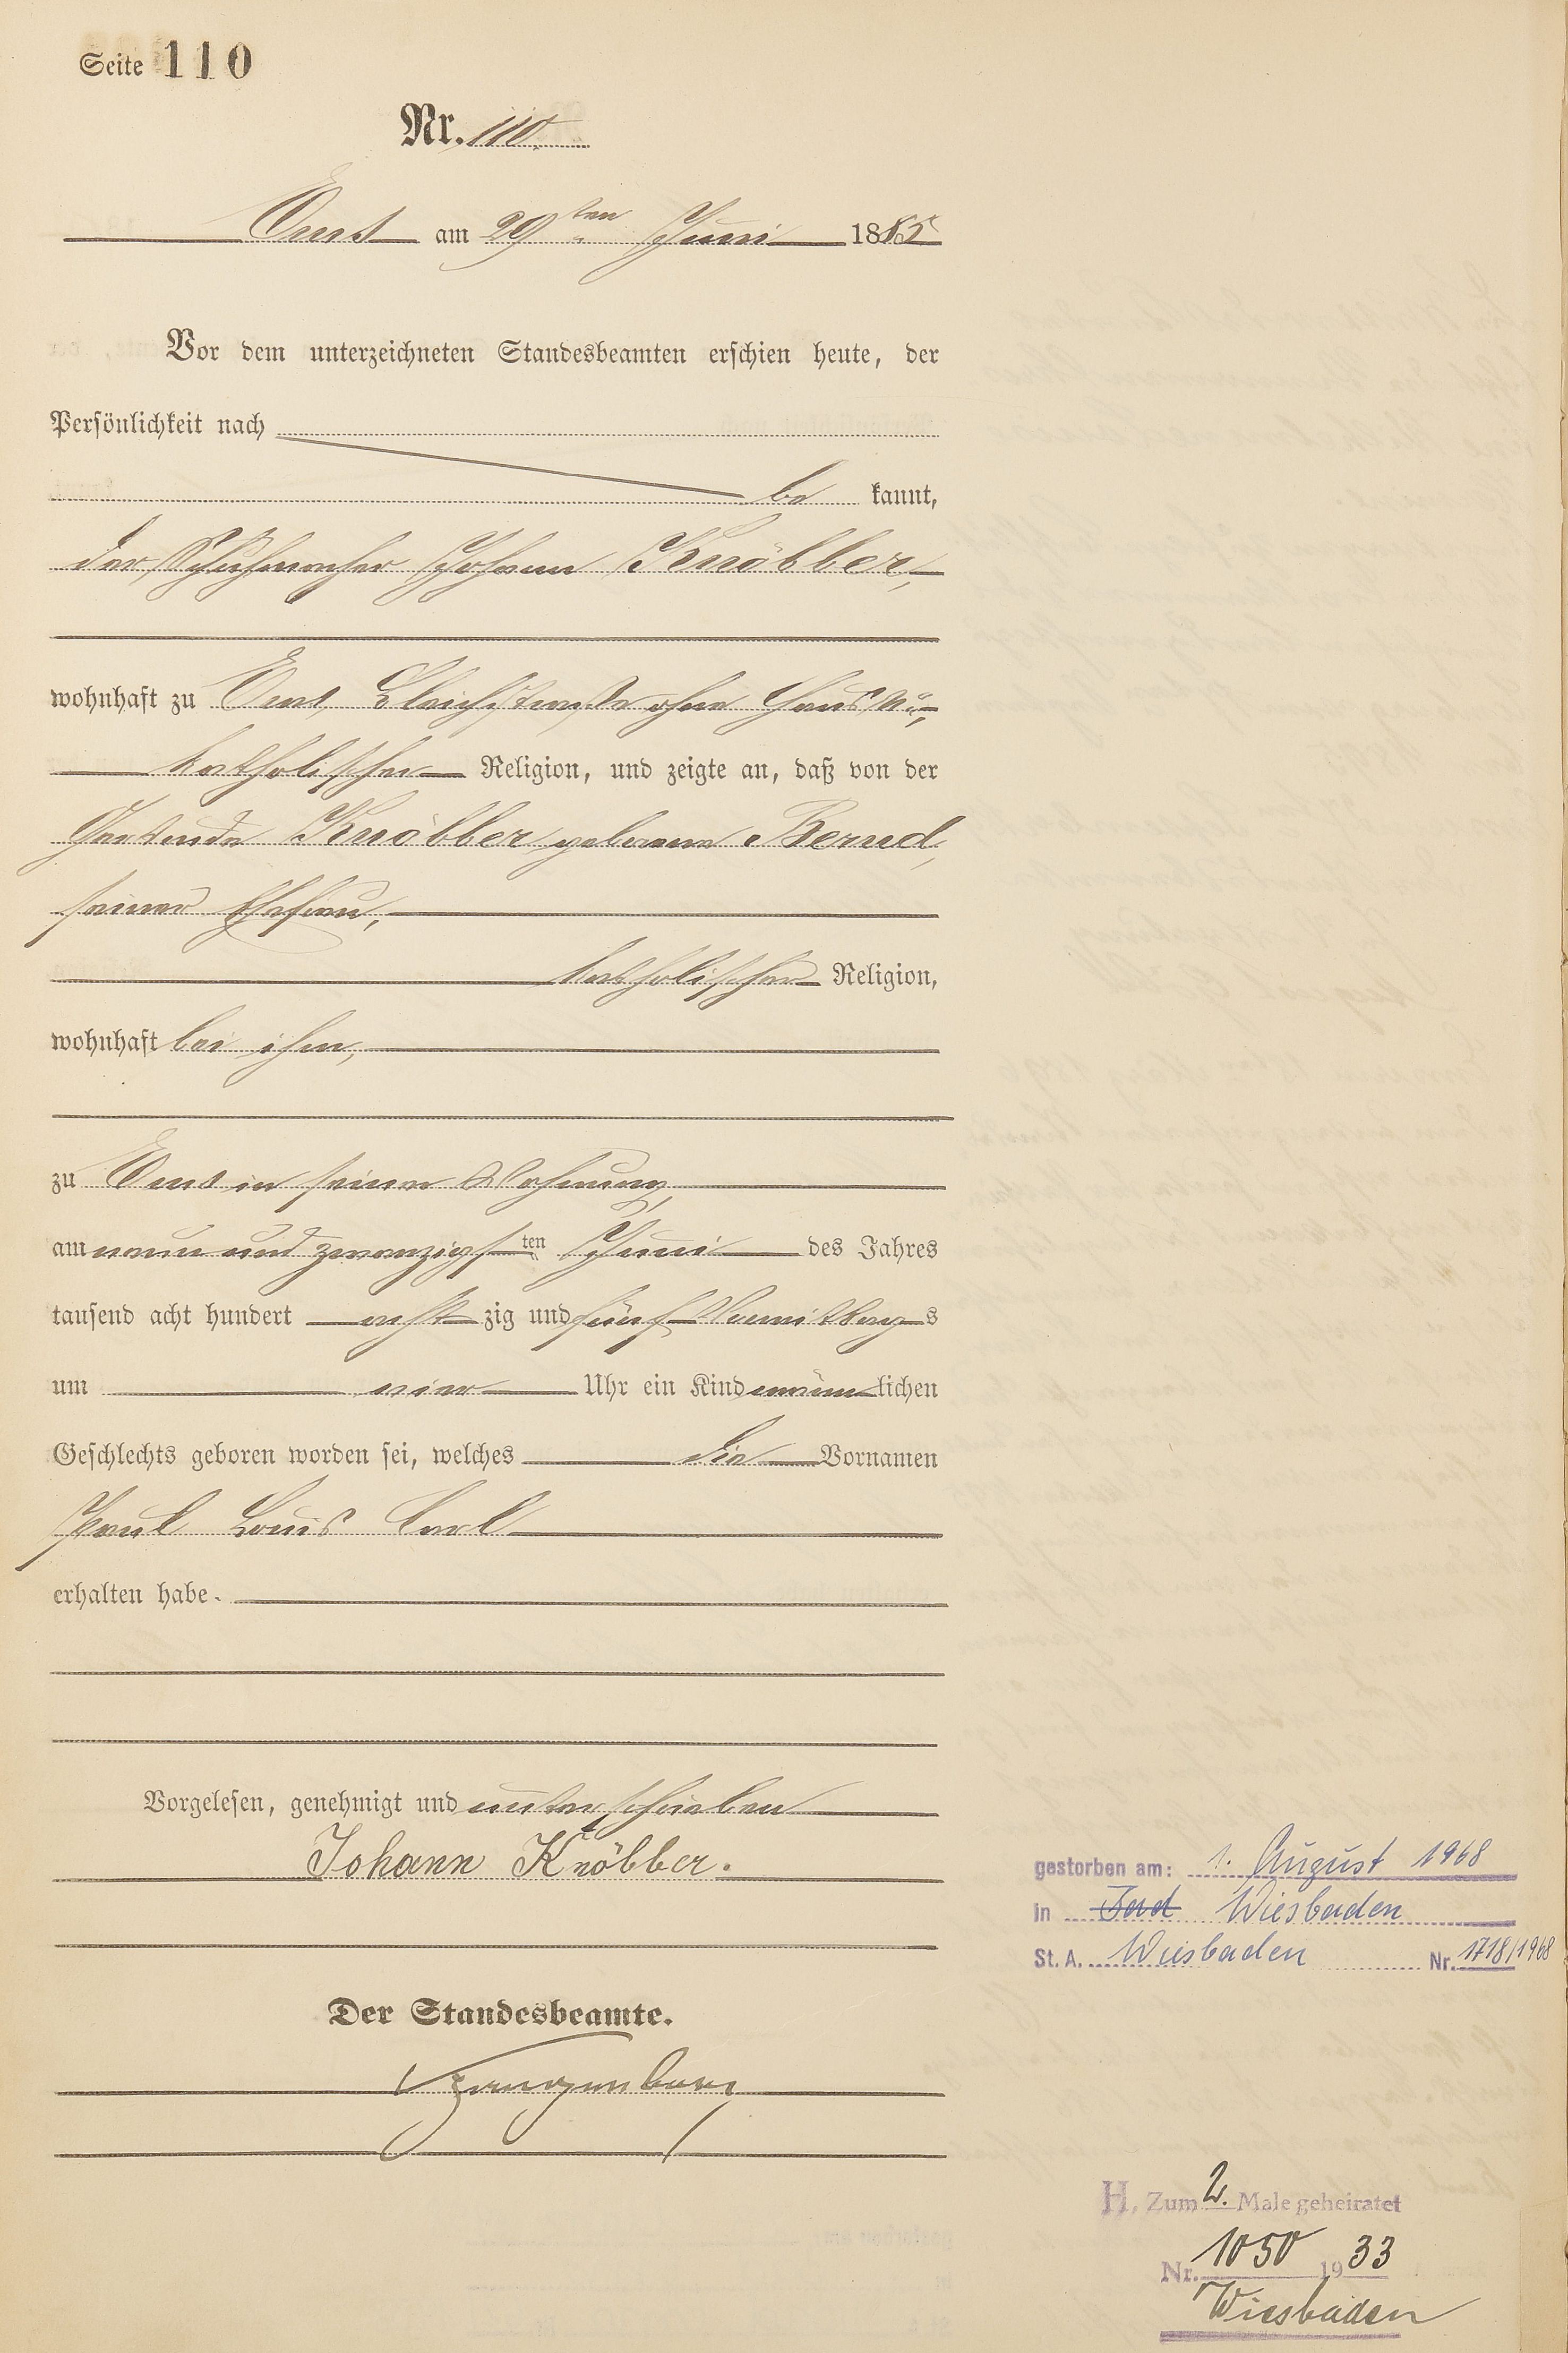 Seite 110
Nr. 110.
Ems am 29ten Juni 1885
Vor dem unterzeichneten Standesbeamten erschien heute, der
Persönlichkeit nach
be kannt,
der Schuhmacher Johann Knöbber,
wohnhaft zu Ems, Bleichstraße ohne Haus
katholischer Religion, und zeigte an, daß von der
Knöbber geborene Bernd,
seiner Ehefrau,
katholischer Religion,
wohnhaft bei ihm,
zu Ems in seiner Wohnung
am neun und zwanzigsten Juni des Jahres
tausend acht hundert acht zig und fünf Vormittags
um vier Uhr ein Kind männlichen
Geschlechts geboren worden sei, welches die Vornamen
Paul Louis Carl
erhalten habe.
Vorgelesen, genehmigt und unterschrieben
Johann Knöbber.
Der Standesbeamte.
gestorben am: 1. August 1968
in Wiesbaden
St. A. Wiesbaden Nr. 1718/1968
H. Zum 2. Male geheiratet
Nr. 1050 1933
Wiesbaden